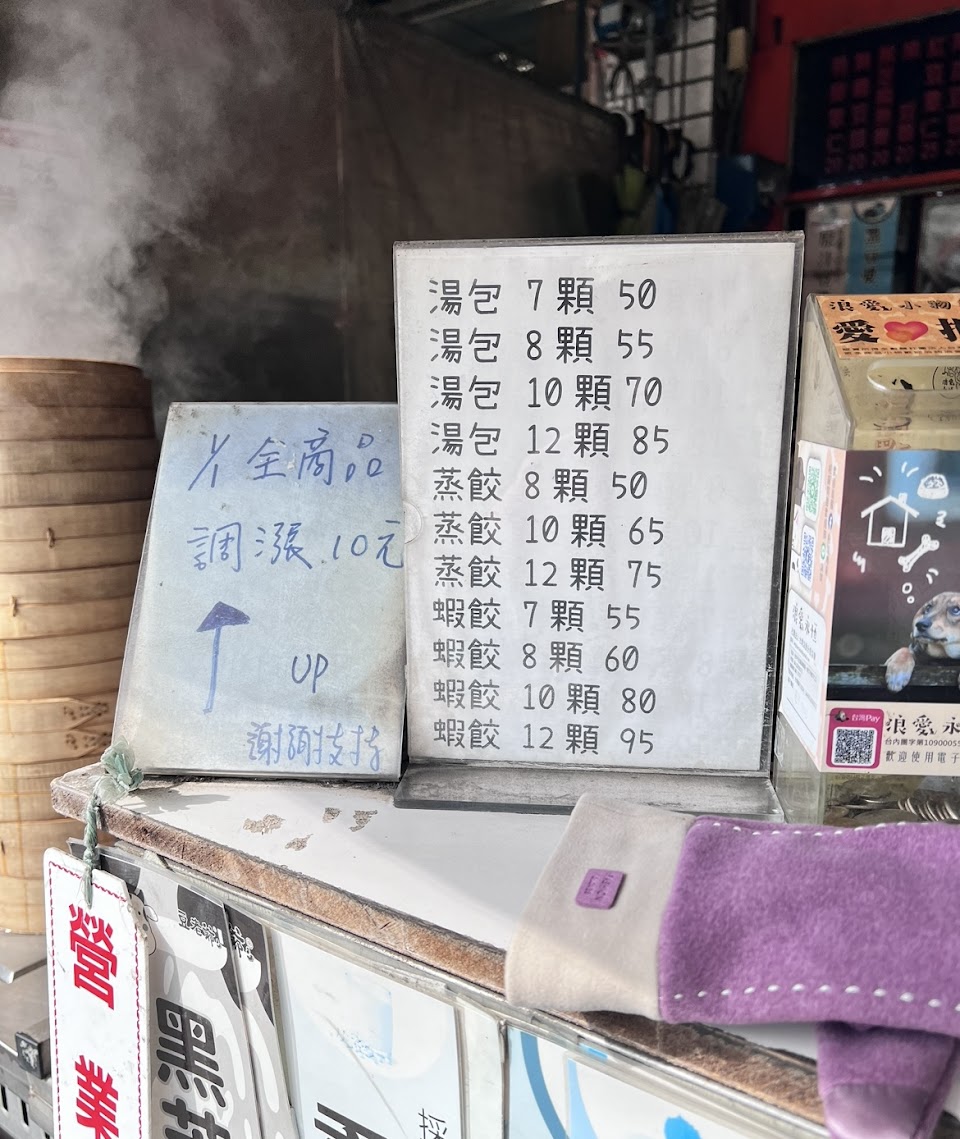 湯包 7 顆 50
湯包 8 顆 55
湯包 10 顆 70
湯包 12 顆 85
蒸餃 8 顆 50
蒸餃 10 顆 65
蒸餃 12 顆 75
蝦餃 7 顆 55
蝦餃 8 顆 60
蝦餃 10 顆 80
蝦餃 12 顆 95
全商品
調漲 10元
UP
謝謝支持
營業
黑
浪愛小物
愛
台灣Pay
浪愛永
台內團字第10900055
歡迎使用電子